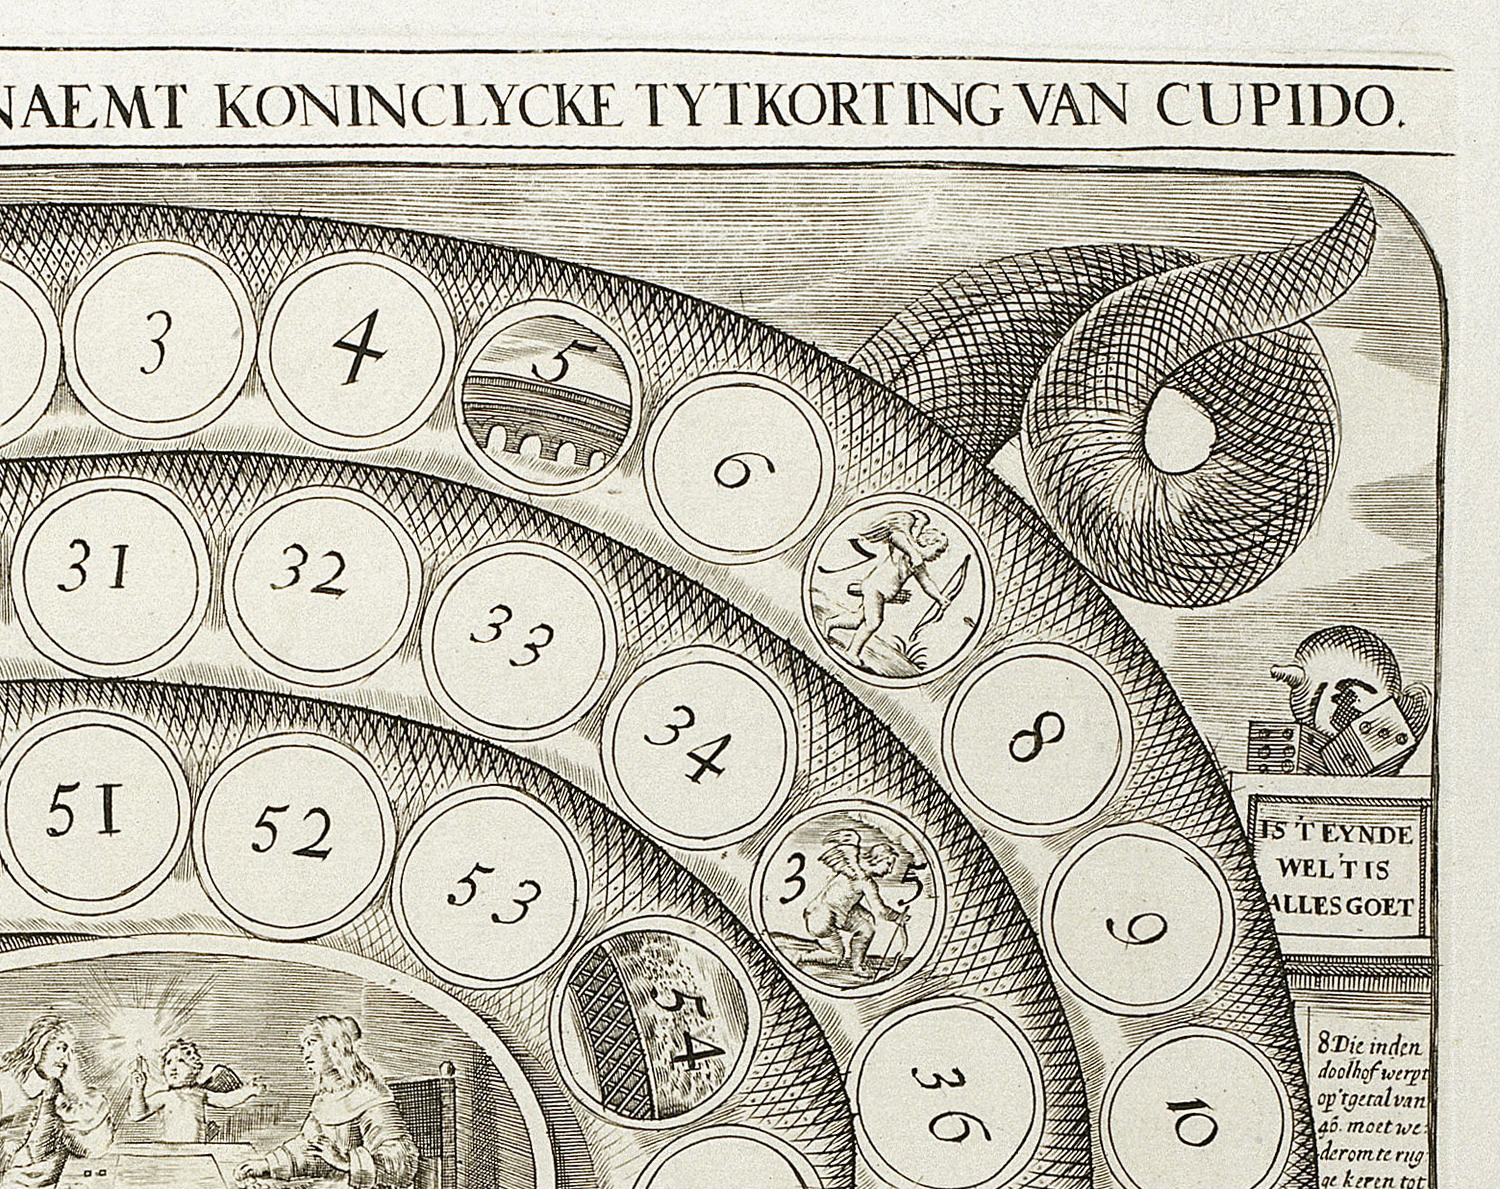 NAEMT KONINCLYCKE TYTKORTING VAN CUPIDO.
3 4 5 6 8 9 10
31 32 33 34 35 36
51 52 53 54
IS 'T EYNDE
WEL 'T IS
ALLES GOET
8 Die inden
doolhof werpt
op 't getal van
46. moet we:
derom te rug
ge keren tot